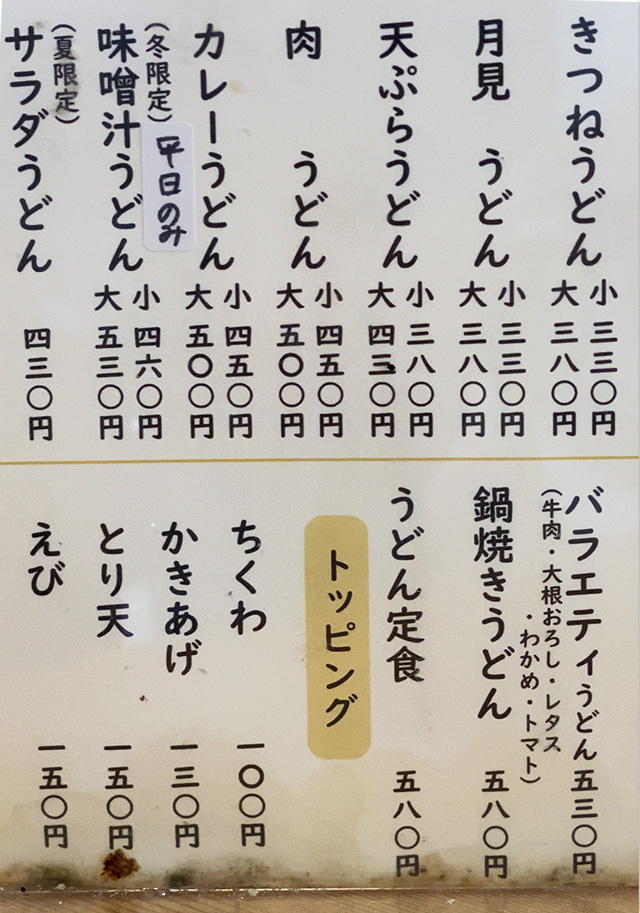 きつねうどん
小 三三〇円
大 三八〇円
月見 うどん
小 三三〇円
大 三八〇円
天ぷらうどん
小 三八〇円
大 四三〇円
肉 うどん
小 四五〇円
大 五〇〇円
カレーうどん
小 四五〇円
大 五〇〇円
(冬限定)
平日のみ
味噌汁うどん
小 四六〇円
大 五三〇円
(夏限定)
サラダうどん
四三〇円
バラエティうどん 五三〇円
(牛肉・大根おろし・レタス
・わかめ・トマト)
鍋焼きうどん 五八〇円
うどん定食 五八〇円
トッピング
ちくわ 一〇〇円
かきあげ 一三〇円
とり天 一五〇円
えび 一五〇円